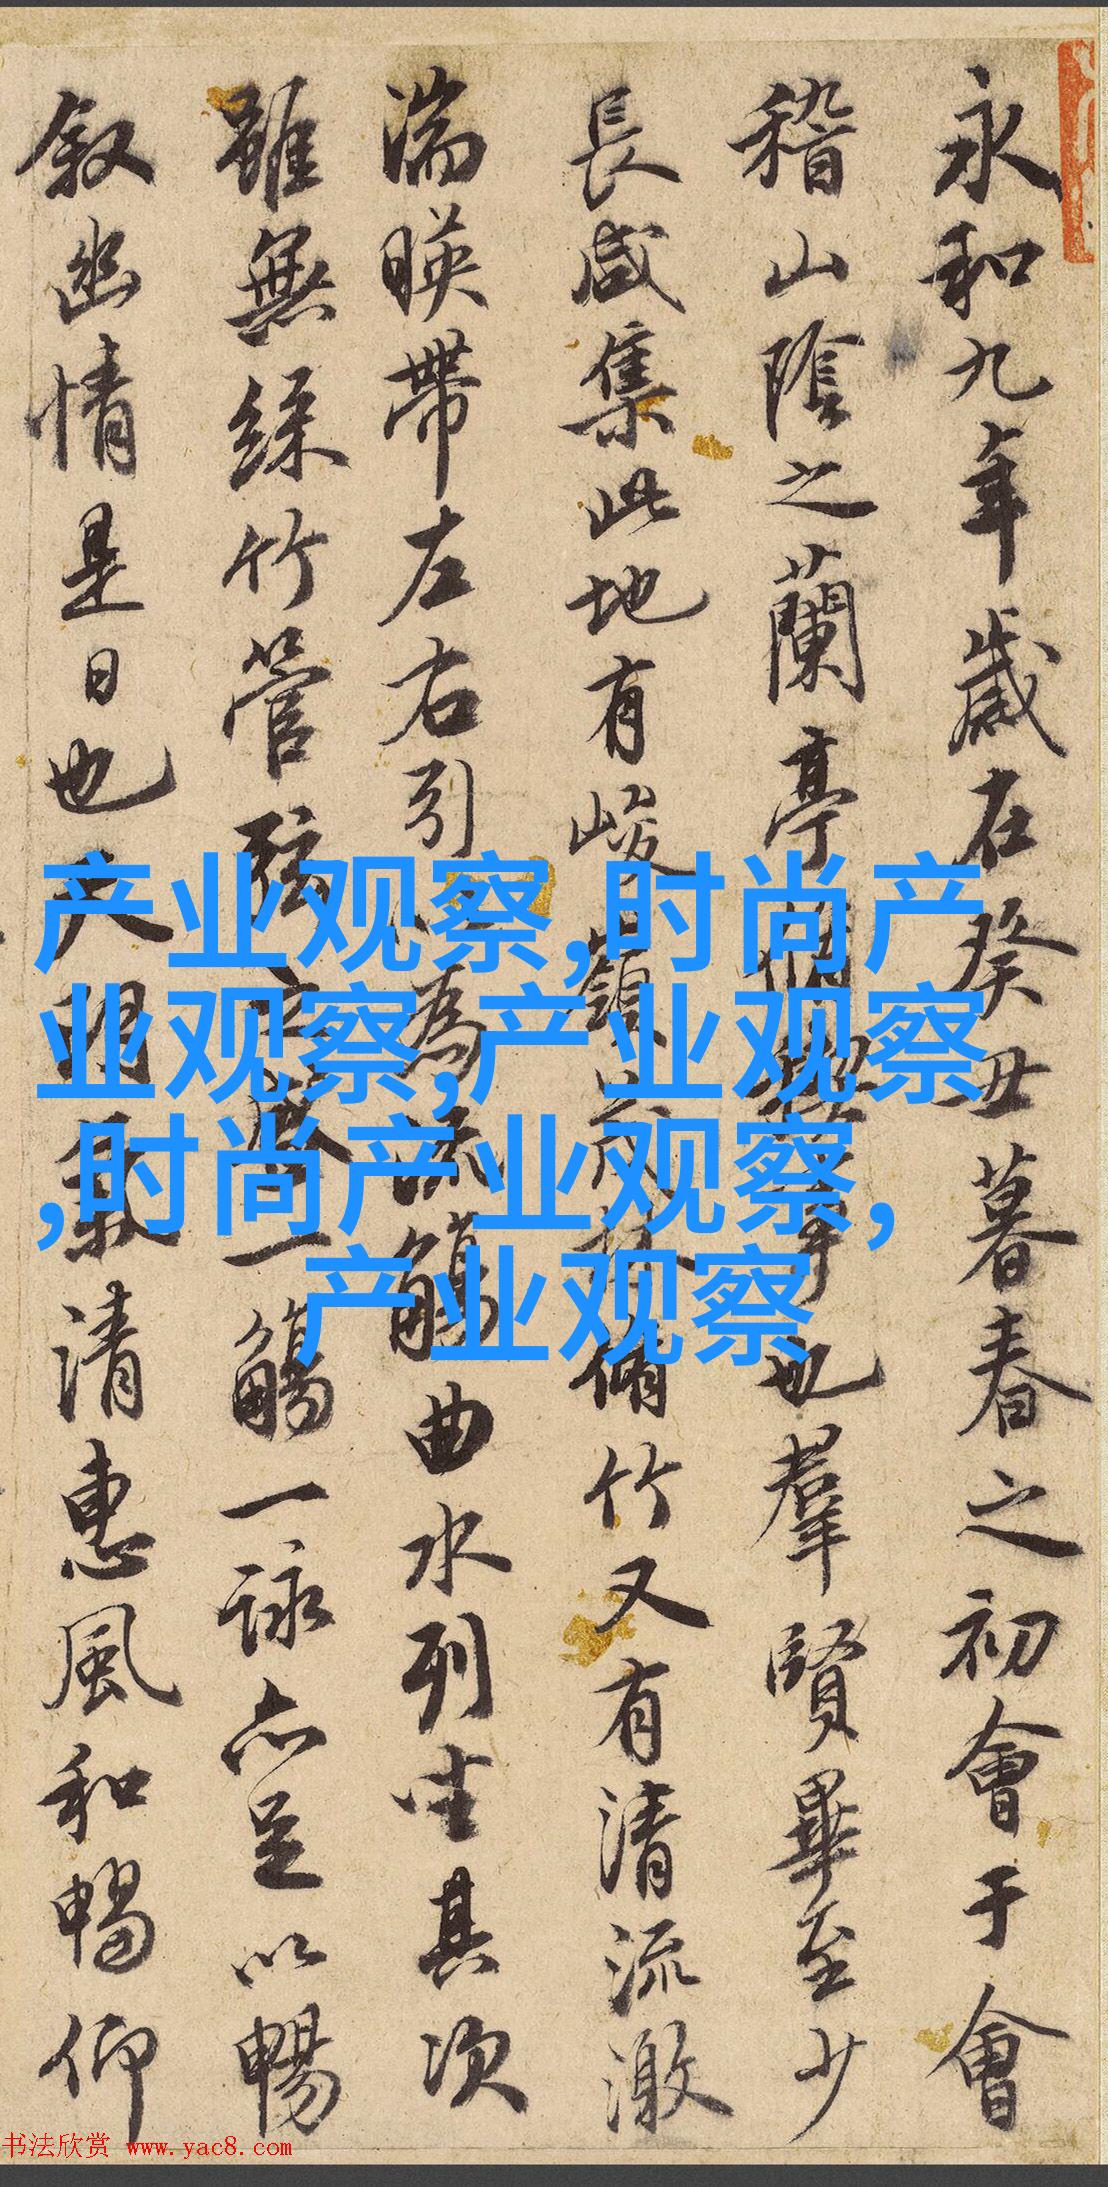 永和九年歲在癸丑暮春之初會于會
稽山陰之蘭亭事也羣賢畢至少
長咸集此地有峻嶺茂林脩竹又有清流激
湍暎帶左右引以為流觴曲水列坐其次
雖無絲竹管弦之盛一觴一詠亦足以暢
叙幽情是日也天朗氣清惠風和暢仰
产业观察,时尚产
业观察,产业观察
,时尚产业观察,
产业观察
书法欣赏 www.yac8.com